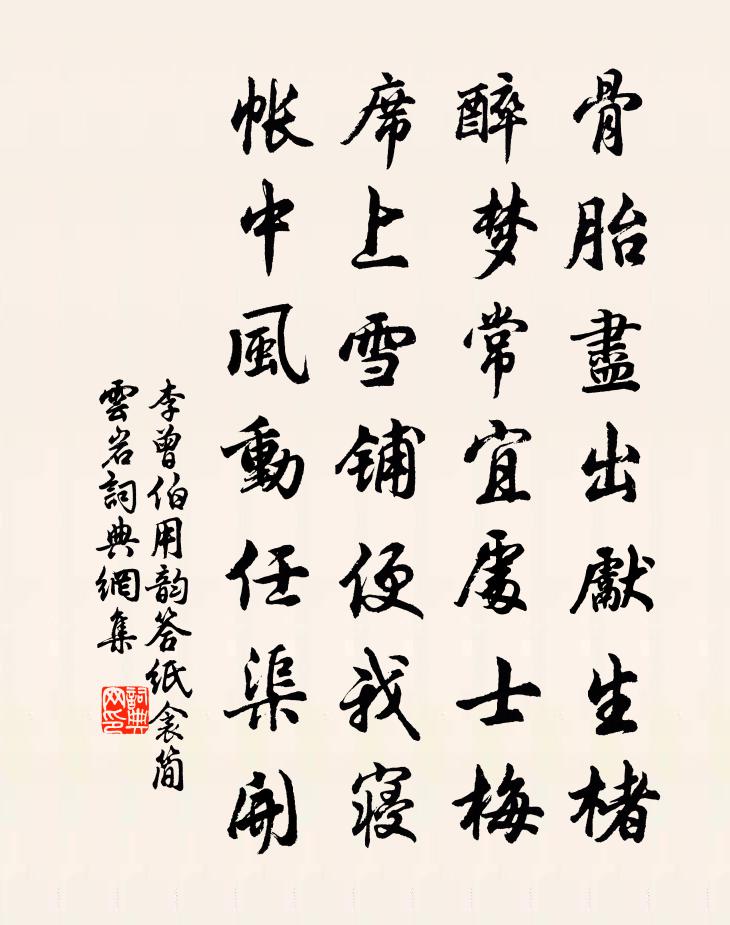 骨胎盡出獻生楮
醉梦常宜處士梅
席上雪铺便我寝
帐中風動任渠開
李曾伯用韵答紙衾简
雲岩詞典網集
詞典网印